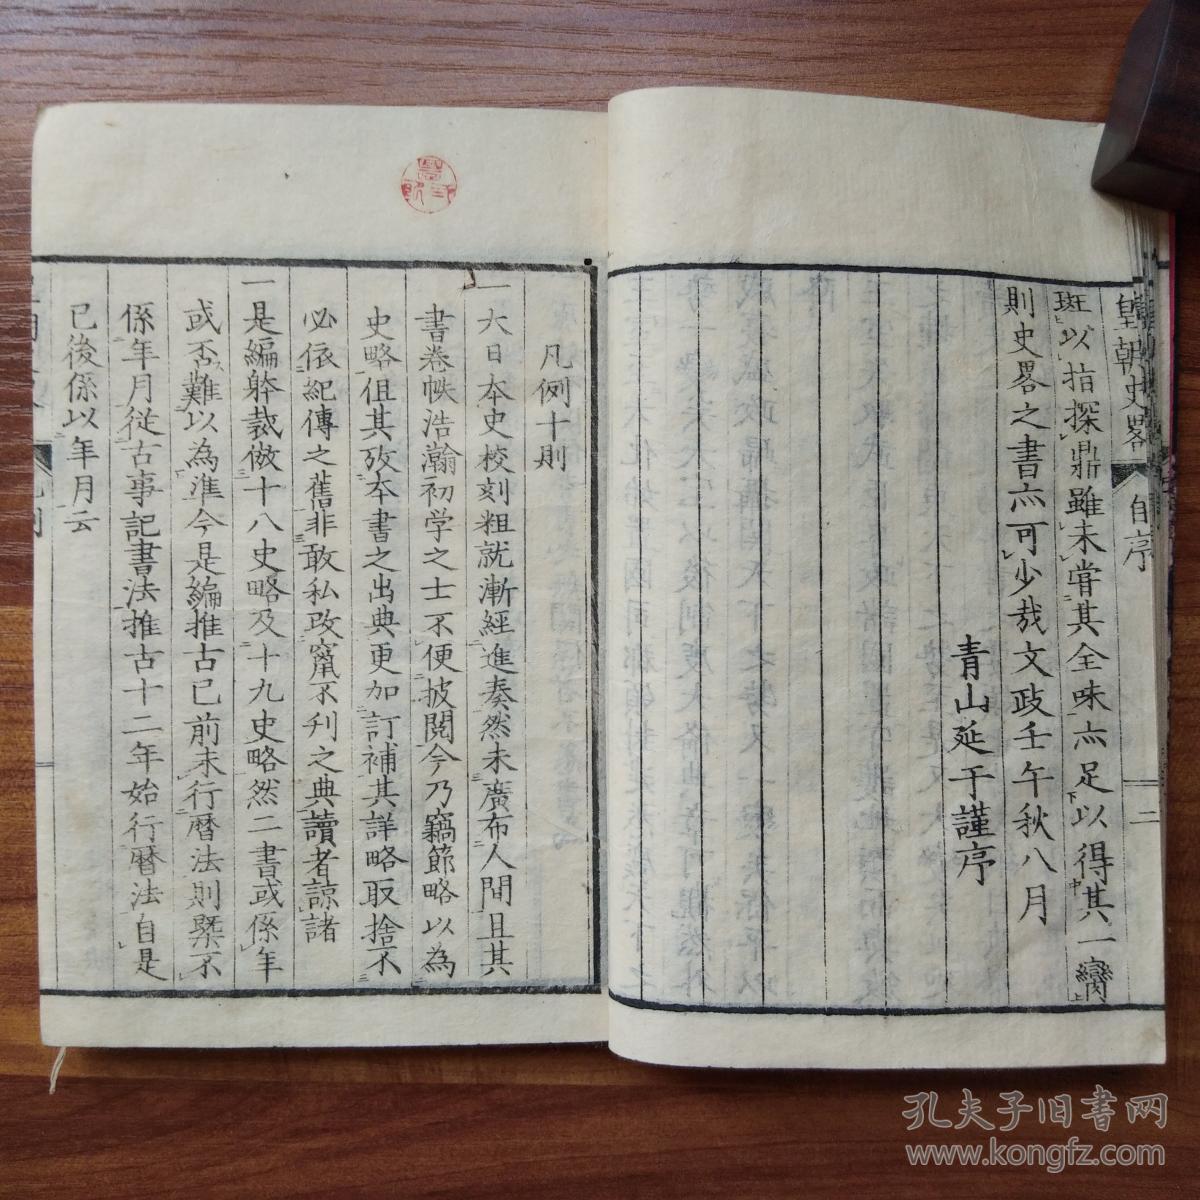 皇朝史畧　自序　二
斑以指探鼎雖未嘗其全味亦足以得其一臠
則史畧之書亦可少哉文政壬午秋八月
青山延于謹序
凡例十則
一大日本史校刻粗就漸經進奏然未廣布人間且其
書卷帙浩瀚初学之士不便披閱今乃竊節略以為
史略但其攷本書之出典更加訂補其詳略取捨不
必依紀傳之舊非敢私改竄不刋之典讀者諒諸
一是編躰裁倣十八史略及十九史略然二書或係年
或否難以為準今是編推古已前未行曆法則槩不
係年月從古事記書法推古十二年始行曆法自是
已後係以年月云
孔夫子旧书网
www.kongfz.com